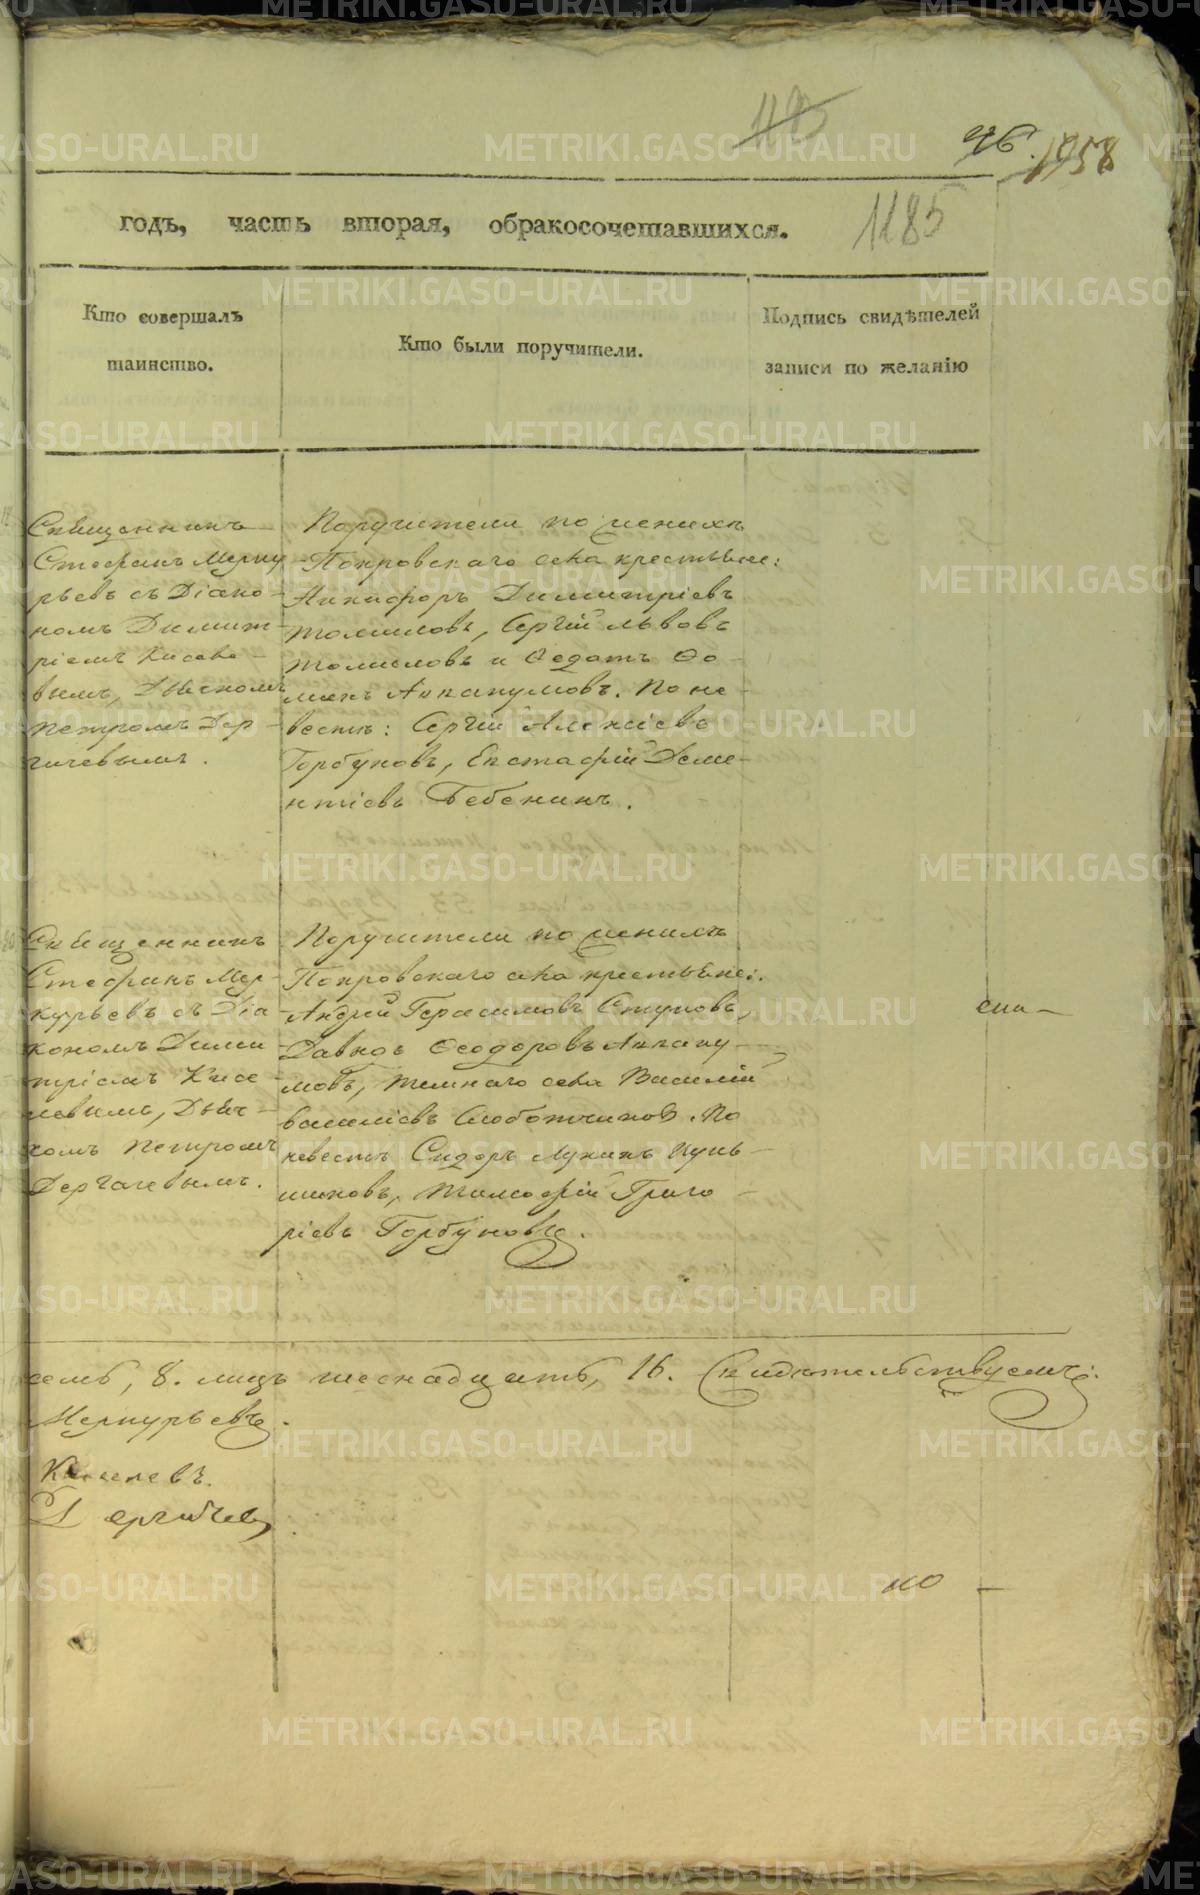 1185
96.
1058
годъ, часть вторая, обракосочетавшихся.
1185
Кто совершалъ
таинство.
Кто были поручители.
Подпись свидѣтелей
записи по желанію
Священникъ
Стефанъ Мерку
рьевъ съ Діако-
номъ Димит-
ріемъ Кисele
вымъ, Дьячкомъ
Петромъ Дер-
гачевымъ.
Поручители по женихѣ
Покровскаго села крестьяне:
Никифоръ Димитріевъ
Томиловъ, Сергій Львовъ
Томиловъ и Ѳедотъ Ѳо-
минъ Аккакумовъ. По не-
вестѣ: Сергій Алексіевъ
Горбуновъ, Евстафій Деме-
нтіевъ Бебенинъ.
Священникъ
Стефанъ Мер-
курьевъ съ Діа
кономъ Дими
тріемъ Кисе
левымъ, Дьяч-
комъ Петромъ
Дергачевымъ.
Поручители по женихѣ
Покровскаго села крестьяне:
Андрей Герасимовъ Ступовъ,
Давидъ Ѳеодоровъ Аккаку-
мовъ, села Василій
Василіевъ Слободчиковъ. По
невестѣ Сидоръ Лукинъ
Тимофей Григо-
ріевъ Горбуновъ.
спи-
семь, 8. лицъ шеснадцать, 16. Свидѣтельствуемъ:
Меркурьевъ.
Киселевъ.
Дергачевъ
по -
METRIKI.GASO-URAL.RU